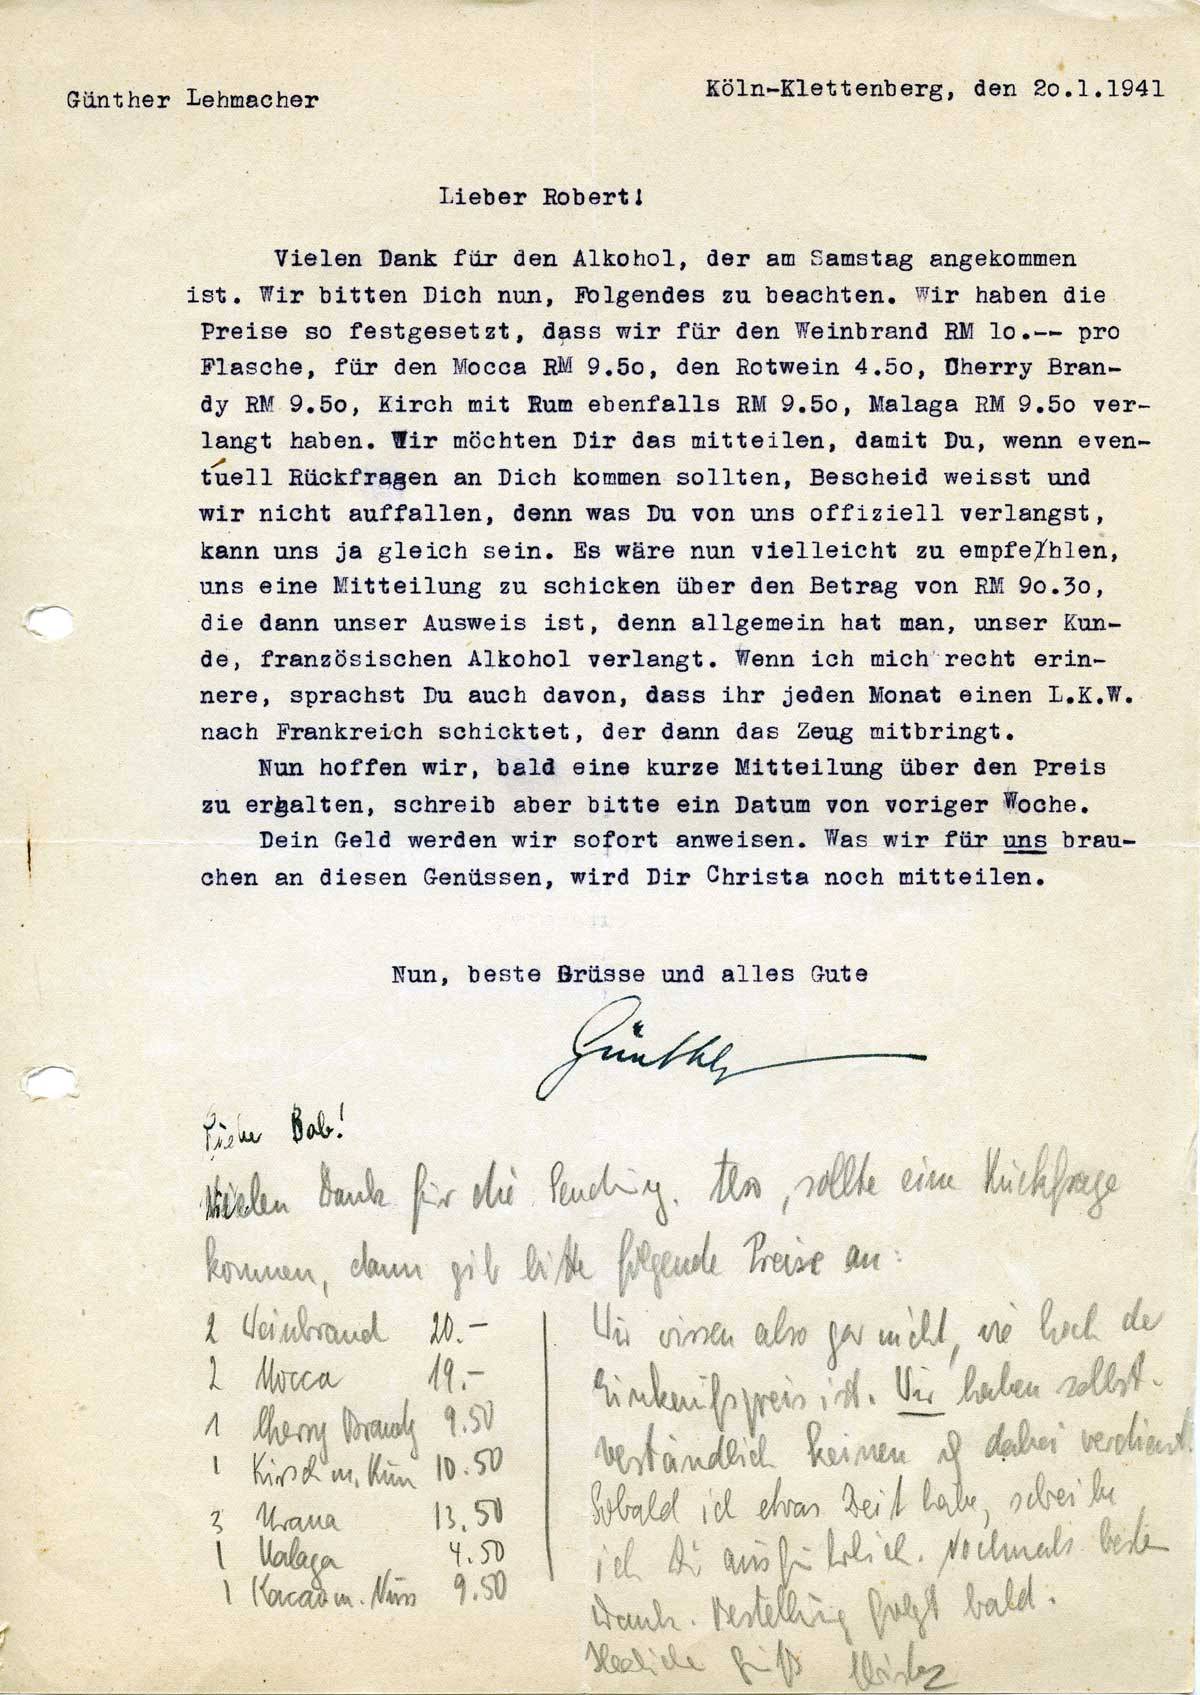 Günther Lehmacher
Köln-Klettenberg, den 20.1.1941
Lieber Robert!
Vielen Dank für den Alkohol, der am Samstag angekommen
ist. Wir bitten Dich nun, Folgendes zu beachten. Wir haben die
Preise so festgesetzt, dass wir für den Weinbrand RM 10.-- pro
Flasche, für den Mocca RM 9.50, den Rotwein 4.50, Cherry Bran-
dy RM 9.50, Kirch mit Rum ebenfalls RM 9.50, Malaga RM 9.50 ver-
langt haben. Wir möchten Dir das mitteilen, damit Du, wenn even-
tuell Rückfragen an Dich kommen sollten, Bescheid weisst und
wir nicht auffallen, denn was Du von uns offiziell verlangst,
kann uns ja gleich sein. Es wäre nun vielleicht zu empfehlen,
uns eine Mitteilung zu schicken über den Betrag von RM 90.30,
die dann unser Ausweis ist, denn allgemein hat man, unser Kun-
de, französischen Alkohol verlangt. Wenn ich mich recht erin-
nere, sprachst Du auch davon, dass ihr jeden Monat einen L.K.W.
nach Frankreich schicktet, der dann das Zeug mitbringt.
Nun hoffen wir, bald eine kurze Mitteilung über den Preis
zu erhalten, schreib aber bitte ein Datum von voriger Woche.
Dein Geld werden wir sofort anweisen. Was wir für uns brau-
chen an diesen Genüssen, wird Dir Christa noch mitteilen.
Nun, beste Grüsse und alles Gute
Günther
Bob!
Vielen Dank für die Sendung. Also, sollte eine Rückfrage
kommen, dann gib bitte folgende Preise an:
2 Weinbrand 20.-
2 Mocca 19.-
1 Cherry Brandy 9.50
1 Kirsch m. Rum 10.50
3 13.50
1 Malaga 4.50
1 Kacao m. Nuss 9.50
Wir wissen also gar nicht, wie hoch der
Einkaufspreis ist. Wir haben selbst-
verständlich keinen dabei verdient.
Sobald ich etwas Zeit habe, schreibe
ich Dir ausführlich. Nochmals besten
Dank. Bestellung folgt bald.
Herzliche